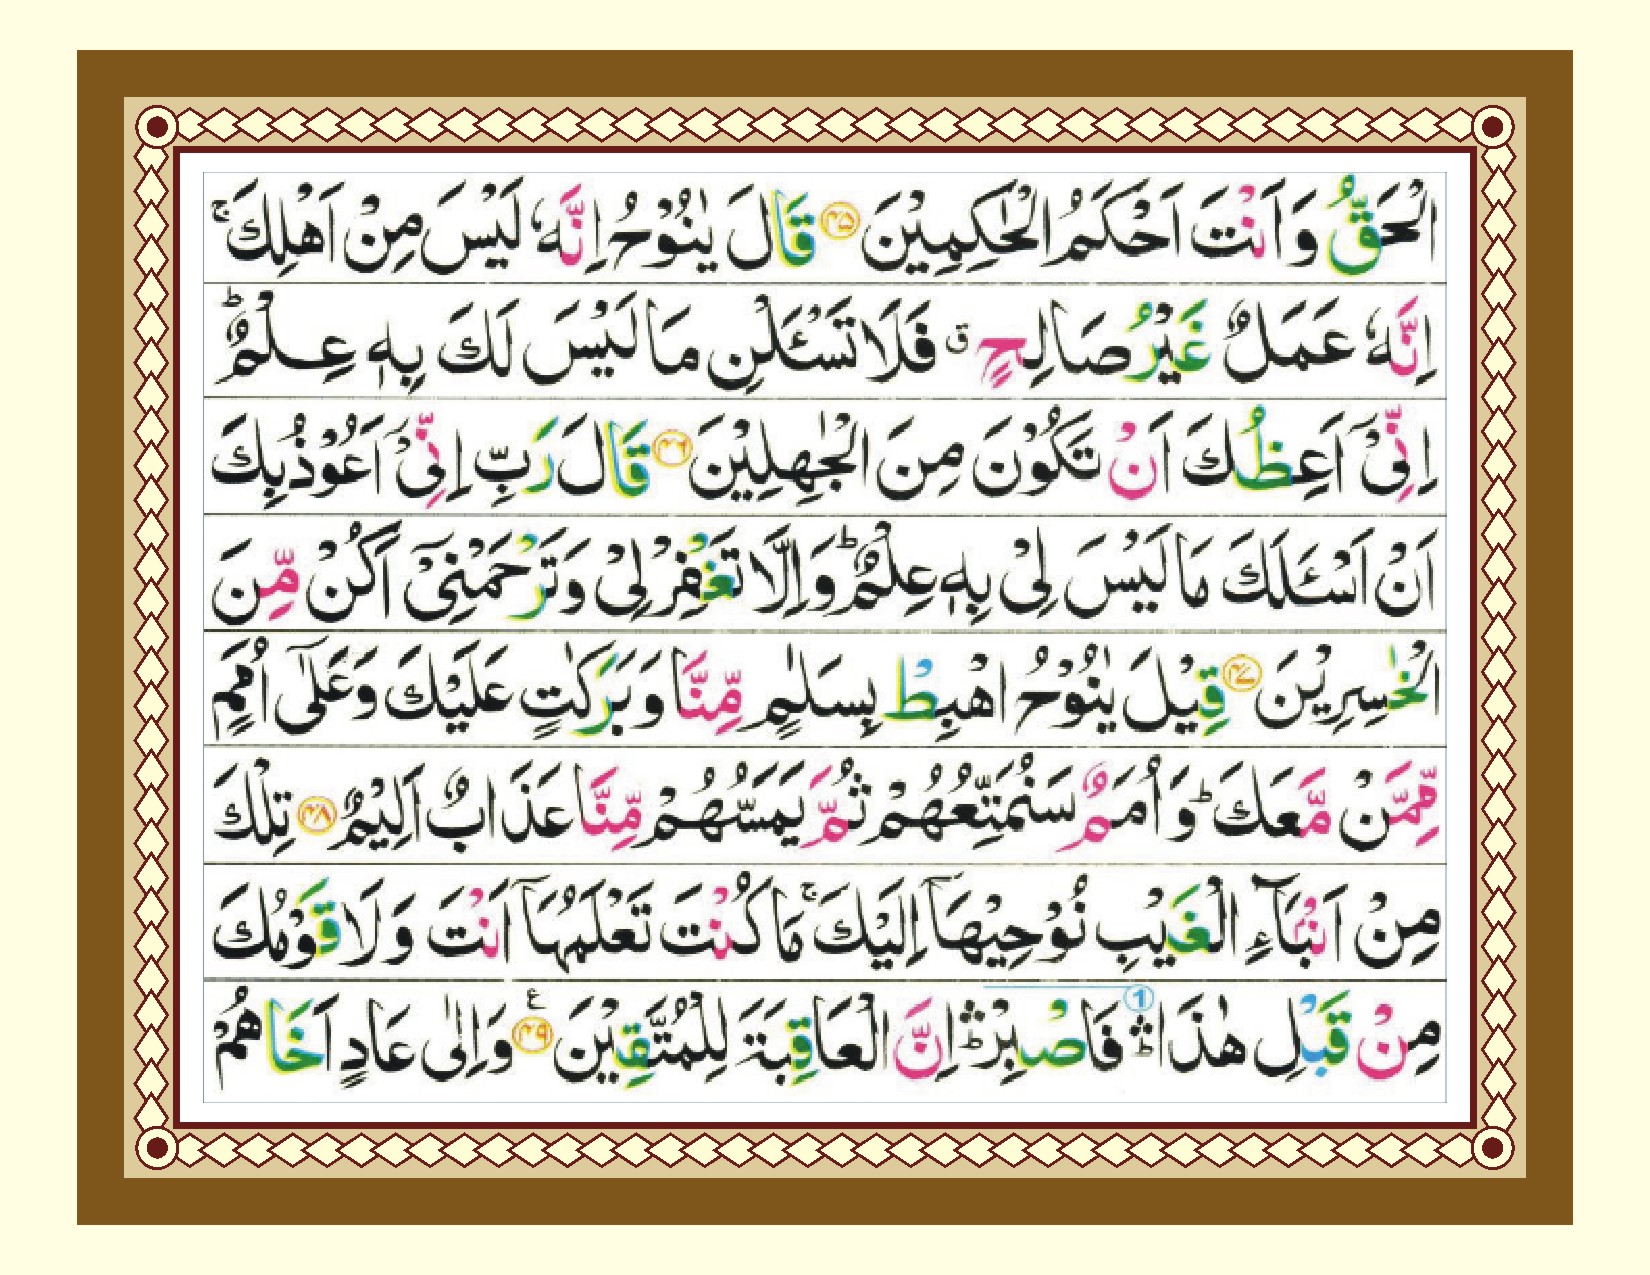 الْحَقُّ وَاَنْتَ اَحْكَمُ الْحٰكِمِيْنَ ۴۵ قَالَ يٰنُوْحُ اِنَّهٗ لَيْسَ مِنْ اَهْلِكَ ۚ
اِنَّهٗ عَمَلٌ غَيْرُ صَالِحٍ ق فَلَا تَسْـَٔلْنِ مَا لَيْسَ لَكَ بِهٖ عِلْمٌ ؕ
اِنِّيْۤ اَعِظُكَ اَنْ تَكُوْنَ مِنَ الْجٰهِلِيْنَ ۴۶ قَالَ رَبِّ اِنِّيْۤ اَعُوْذُ بِكَ
اَنْ اَسْـَٔلَكَ مَا لَيْسَ لِيْ بِهٖ عِلْمٌ ؕ وَاِلَّا تَغْفِرْ لِيْ وَتَرْحَمْنِيْۤ اَكُنْ مِّنَ
الْخٰسِرِيْنَ ۴۷ قِيْلَ يٰنُوْحُ اهْبِطْ بِسَلٰمٍ مِّنَّا وَبَرَكٰتٍ عَلَيْكَ وَعَلٰۤى اُمَمٍ
مِّمَّنْ مَّعَكَ ؕ وَاُمَمٌ سَنُمَتِّعُهُمْ ثُمَّ يَمَسُّهُمْ مِّنَّا عَذَابٌ اَلِيْمٌ ۴۸ تِلْكَ
مِنْ اَنْۢبَآءِ الْغَيْبِ نُوْحِيْهَاۤ اِلَيْكَ ۚ مَا كُنْتَ تَعْلَمُهَاۤ اَنْتَ وَلَا قَوْمُكَ
مِنْ قَبْلِ هٰذَا ۛؕ 1 فَاصْبِرْ ۛؕ اِنَّ الْعَاقِبَةَ لِلْمُتَّقِيْنَ ۴۹ ع وَاِلٰى عَادٍ اَخَاهُمْ